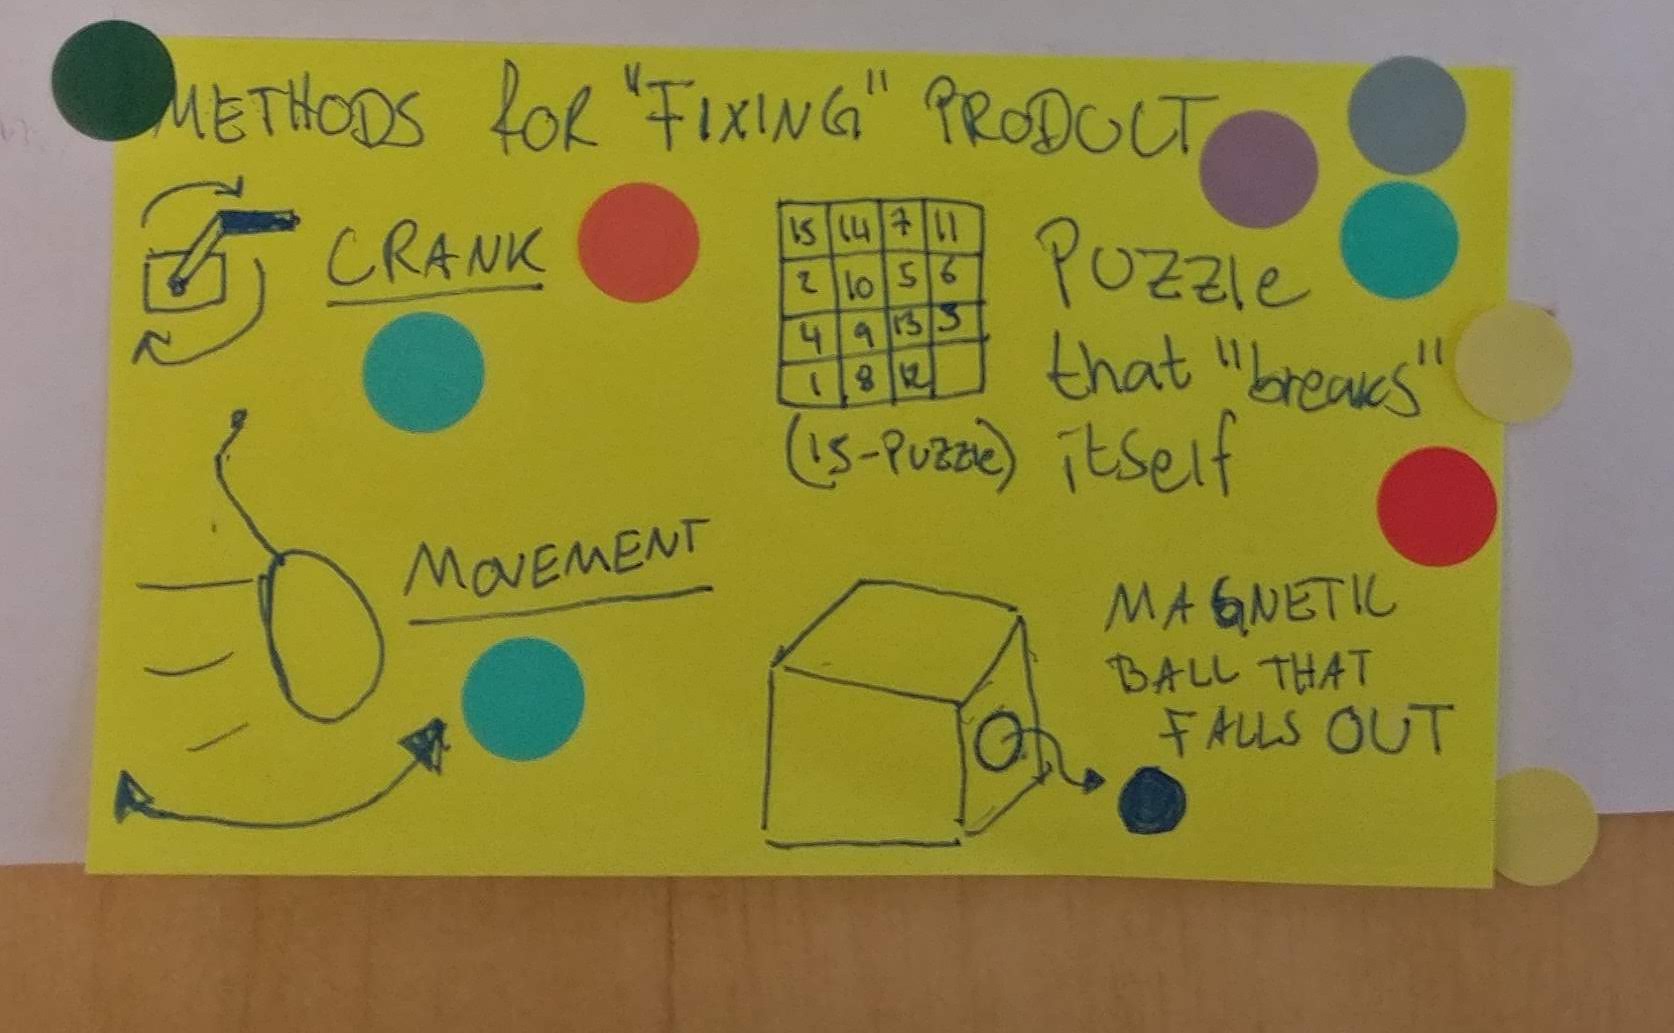 METHODS FOR "FIXING" PRODUCT
CRANK
15 14 7 11
2 10 5 6
4 9 13 3
1 8 12
(15-PUZZLE)
PUZZLE
that "breaks"
itself
MOVEMENT
MAGNETIC
BALL THAT
FALLS OUT